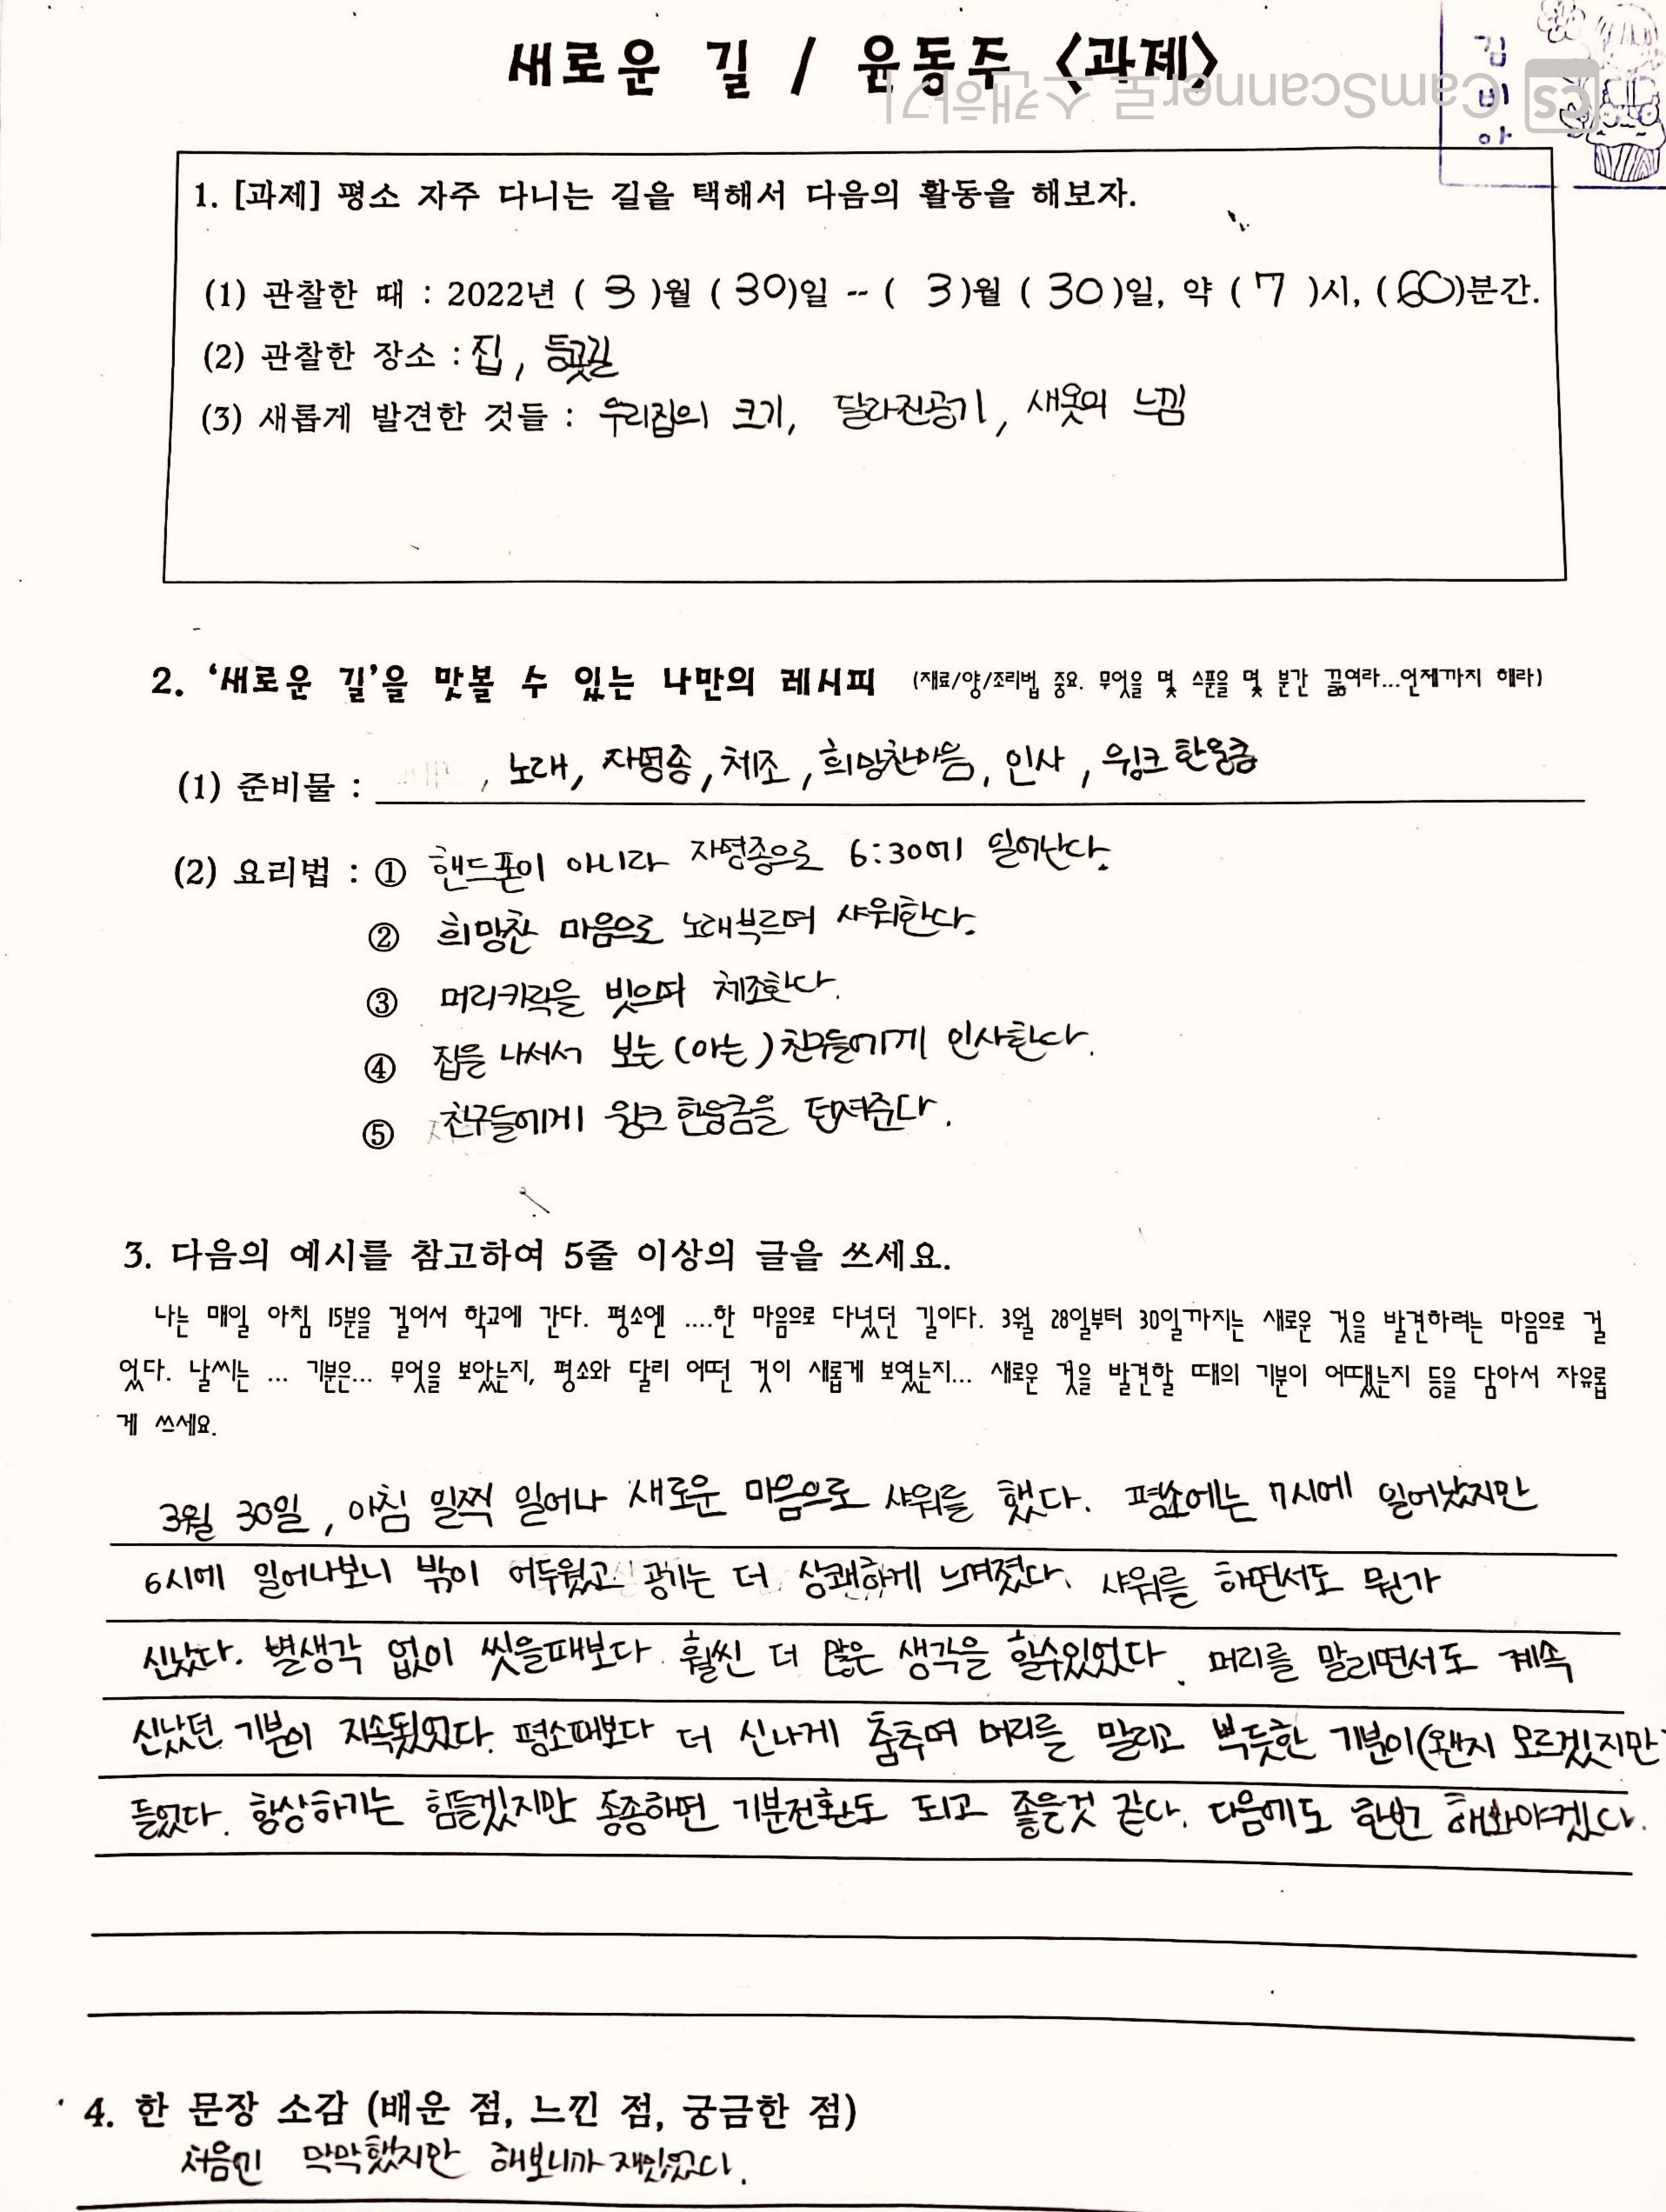 새로운 길 / 윤동주 <과제>
CamScanner로 스캔하기
김비아
1. [과제] 평소 자주 다니는 길을 택해서 다음의 활동을 해보자.
(1) 관찰한 때 : 2022년 ( 3 )월 ( 30)일 -- ( 3)월 ( 30 )일, 약 ( 7 )시, (60)분간.
(2) 관찰한 장소 : 집, 등굣길
(3) 새롭게 발견한 것들 : 우리집의 크기, 달라진공기, 새옷의 느낌
2. ‘새로운 길’을 맛볼 수 있는 나만의 레시피 (재료/양/조리법 중요. 무엇을 몇 스푼을 몇 분간 끓여라...언제까지 해라)
(1) 준비물 : , 노래, 자명종, 체조, 희망찬마음, 인사, 윙크 한웅큼
(2) 요리법 : ① 핸드폰이 아니라 자명종으로 6:30에 일어난다.
② 희망찬 마음으로 노래부르며 샤워한다.
③ 머리카락을 빗으며 체조한다.
④ 집을 나서서 보는 (아는) 친구들에게 인사한다.
⑤ 친구들에게 윙크 한웅큼을 던져준다.
3. 다음의 예시를 참고하여 5줄 이상의 글을 쓰세요.
나는 매일 아침 15분을 걸어서 학교에 간다. 평소엔 ....한 마음으로 다녔던 길이다. 3월 28일부터 30일까지는 새로운 것을 발견하려는 마음으로 걸
었다. 날씨는 ... 기분은... 무엇을 보았는지, 평소와 달리 어떤 것이 새롭게 보였는지... 새로운 것을 발견할 때의 기분이 어땠는지 등을 담아서 자유롭
게 쓰세요.
3월 30일, 아침 일찍 일어나 새로운 마음으로 샤워를 했다. 평소에는 7시에 일어났지만
6시에 일어나보니 밖이 어두웠고 공기는 더 상쾌하게 느껴졌다. 샤워를 하면서도 뭔가
신났다. 별생각 없이 씻을때보다 훨씬 더 많은 생각을 할수있었다. 머리를 말리면서도 계속
신났던 기분이 지속됬었다. 평소때보다 더 신나게 춤추며 머리를 말리고 뿌듯한 기분이(왠지 모르겠지만)
들었다. 항상하기는 힘들겠지만 종종하면 기분전환도 되고 좋을것 같다. 다음에도 한번 해봐야겠다.
4. 한 문장 소감 (배운 점, 느낀 점, 궁금한 점)
처음엔 막막했지만 해보니까 재밌었다.